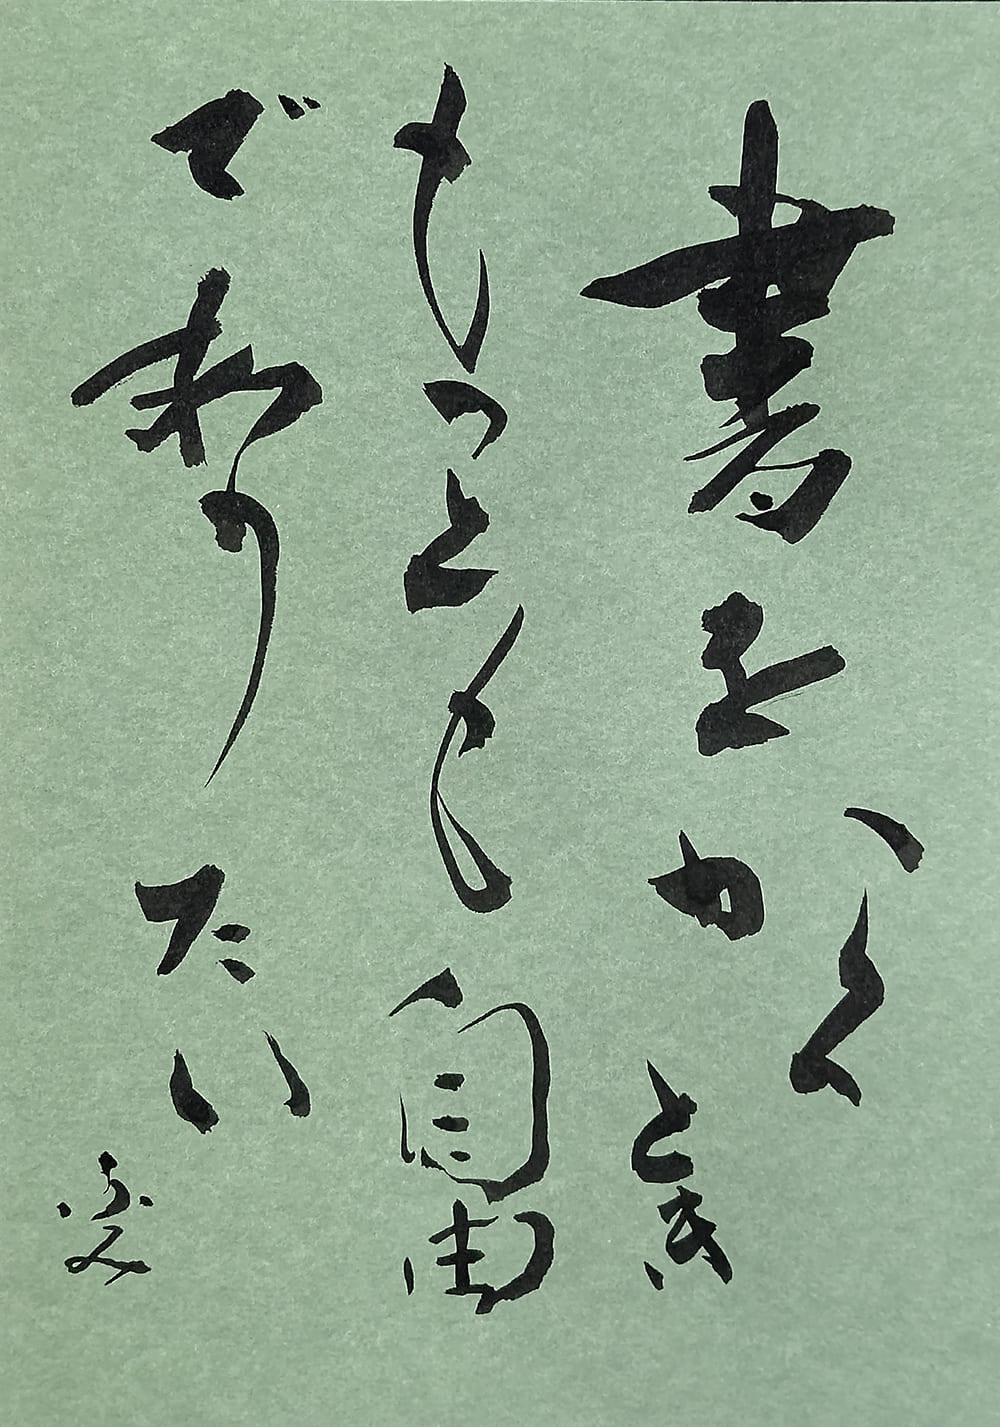 書をかくとき
もっとも自由
で那りたい
ふみ